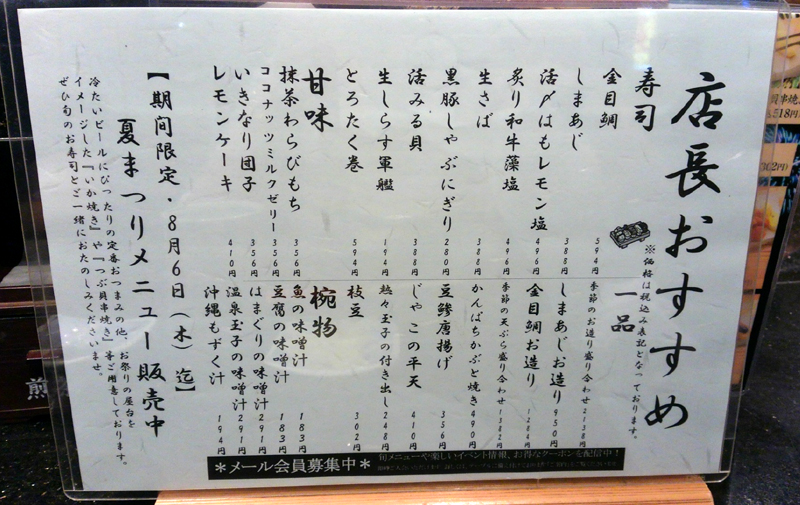 店長おすすめ
※価格は税込み表記となっております。
寿司
金目鯛 594円
しまあじ 388円
活〆はもレモン塩 496円
炙り和牛藻塩 496円
生さば 388円
黒豚しゃぶにぎり 280円
活みる貝 388円
生しらす軍艦 194円
とろたく巻 594円
甘味
抹茶わらびもち 356円
ココナッツミルクゼリー 356円
いきなり団子 356円
レモンケーキ 410円
一品
季節のお造り盛り合わせ 2138円
しまあじお造り 950円
金目鯛お造り 1284円
季節の天ぷら盛り合わせ 1382円
かんぱちかぶと焼き 490円
豆鯵唐揚げ 356円
じゃこの平天 410円
越々玉子の付き出し 248円
枝豆 302円
椀物
魚の味噌汁 183円
豆腐の味噌汁 183円
はまぐりの味噌汁 291円
温泉玉子の味噌汁 291円
沖縄もずく汁 194円
【期間限定・8月6日(木)迄】
夏まつりメニュー販売中
冷たいビールにぴったりの定番おつまみの他、お祭りの屋台を
イメージした『いか焼き』や『つぶ貝串焼き』等ご用意しております。
ぜひ旬のお寿司とご一緒におたのしみくださいませ。
＊メール会員募集中＊
旬メニューや楽しいイベント情報、お得なクーポンを配信中！